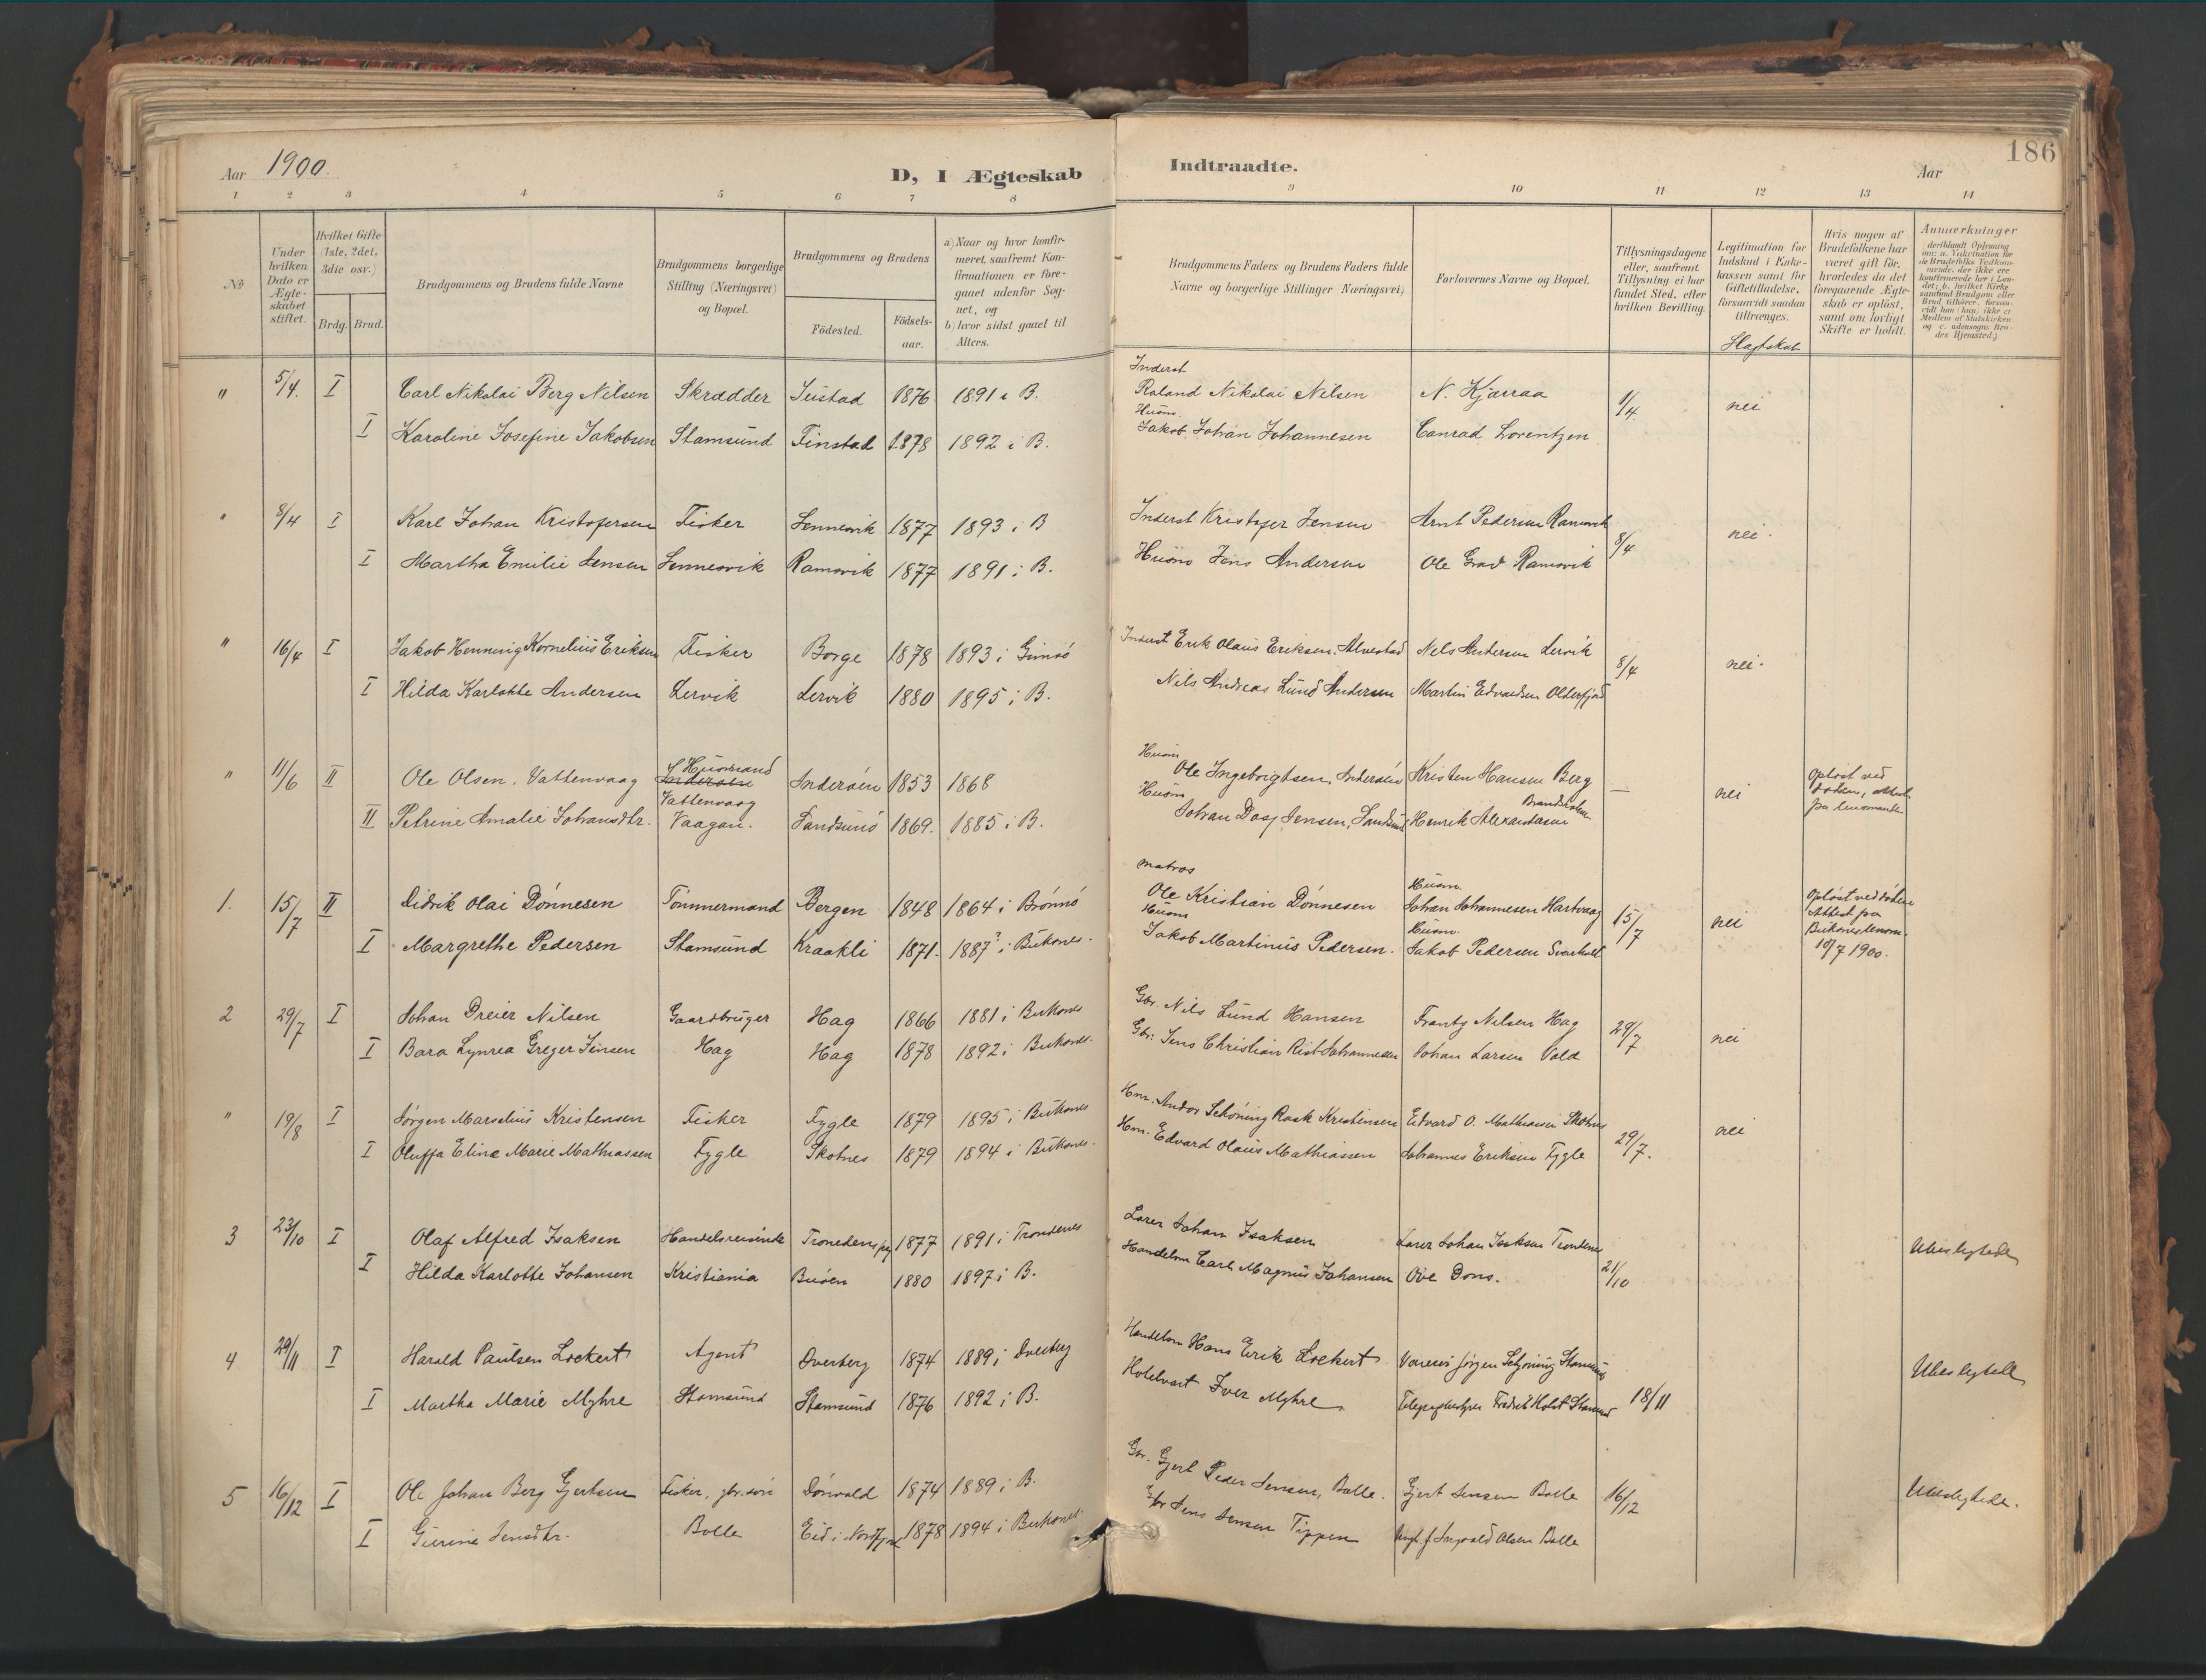 186
Aar 1900.
D, I Ægteskab Indtraadte.
Aar
1 2 3 4 5 6 7 8 9 10 11 12 13 14
№
Under hvilken Dato er Ægteskabet stiftet.
Hvilket Gifte (1ste, 2det, 3die osv.)
Brdg. Brud.
Brudgommens og Brudens fulde Navne
Brudgommens borgerlige Stilling (Næringsvei) og Bopæl.
Brudgommens og Brudens
Fødested. Fødselsaar.
a) Naar og hvor konfirmeret, saafremt Konfirmationen er foregaaet udenfor Sognet, og
b) hvor sidst gaaet til Alters.
Brudgommens Faders og Brudens Faders fulde Navne og borgerlige Stillinger (Næringsvei)
Forlovernes Navne og Bopæl.
Tillysningsdagene eller, saafremt Tillysning ei har fundet Sted, efter hvilken Bevilling.
Legitimation for Indskud i Enkekassen samt for Giftetilladelse, forsaavidt saadan tiltrænges.
Slagtskab
Hvis nogen af Brudefolkene har været gift før, hvorledes da det foregaaende Ægteskab er opløst, samt om lovligt Skifte er holdt.
Anmærkninger
" 5/4. I Carl Nikolai Berg Nilsen Skrædder Justad 1876 1891 i B. Inderst Roland Nikolai Nilsen N. Kjærraa 1/4. nei
I Karoline Josefine Jakobsen Stamsund Finstad 1878 1892 i B. Husm. Jakob Johan Johannesen Conrad Lorentzen
" 8/4 I Karl Johan Kristofersen Fisker Sennesvik 1877 1893 i B Inderst Kristofer Jensen Arnt Pedersen Ramsvik 8/4 nei.
I Martha Emilie Jensen Sennesvik Ramsvik 1877 1891 i B. Husm Jens Andersen Ole Grav Ramsvik
" 16/4 I Jakob Henning Kornelius Eriksen Fisker Borge 1878 1893 i Gimsø Inderst Erik Olaus Eriksen, Alvestad Nels Andersen Lervik 8/4 nei.
I Hilda Karlotte Andersen Lervik Lervik 1880 1895 i B. Nils Andreas Lund Andersen Martin Edvardsen Olderfjord
" 11/6 II Ole Olsen, Vattenvaag Husmand Inderøen 1853 1868 Husm Ole Ingebrigtsen, Inderøen Kristen Hansen Berg — nei Opløst ved døden, attest fra lensmanden
II Petrine Amalie Johansdtr. Vattenvaag Vaagan. Sandsund 1869. 1885 i B. Husm Johan Dass Jensen, Sandsund Henrik Alexandersen Brandsholm
1. 15/7 II Didrik Olai Dønnesen Tømmermand Bergen 1848 1864 i Brønnø matros Ole Kristian Dønnesen Husm. Johan Johannesen Hartvaag 15/7 nei Opløst ved døden Attest fra Buksnes lensm. 10/7 1900.
I Margrethe Pedersen Stamsund Kraakli 1871. 1887? i Buksnes. Husm Jakob Martinus Pedersen. Husm. Jakob Pedersen Svarholt
2 29/7 I Johan Dreier Nilsen Gaardbruger Hag 1866 1881 i Buksnes Gbr. Nils Lund Hansen Frantz Nilsen Hag 29/7 nei
I Bara Lynrea Greger Jensen Hag Hag 1878 1892 i Buksnes. Gbr. Jens Christian Rist Johannesen Johan Larsen Vold
" 19/8 I Jørgen Marselius Kristensen Fisker Fygle 1879 1895 i Buksnes Hm. Andor Schøning Rask Kristensen Edvard O. Mathiassen Skotnes 29/7. nei
I Oluffa Eline Marie Mathiassen Fygle Skotnes 1879 1894 i Buksnes. Hm. Edvard Olaus Mathiassen Johannes Eriksen Fygle
3 23/10 I Olaf Alfred Isaksen Handelsreisende Trondenes 1877 1891 i Trondenes Lærer Johan Isaksen Lærer Johan Isaksen Trondenes 21/10 Ubeslegtede
I Hilda Karlotte Johansen Kristiania Buøen 1880 1897 i B. Handelsm Carl Magnus Johansen Ove Dons.
4 29/11 I Harald Paulsen Lockert Agent Dverberg 1874 1889 i Dverberg Handelsm Hans Erik Lockert Jørgen Schjøning Stamsund 18/11 Ubeslegtede
I Martha Marie Myhre Stamsund Stamsund 1876 1892 i B. Hotelvært Iver Myhre Telegrafbestyrer Fredrik Holst Stamsund
5 16/12 I Ole Johan Berg Gjertsen Fisker, gbr.søn Dønvold 1874 1889 i B. Gbr. Gjert Peder Jensen, Bolle. Gjert Jensen Bolle 16/12 Ubeslegtede.
I Gurine Jensdtr. Bolle Eid i Nordfjord 1878 1894 i Buksnes. Gbr Jens Jensen Tippen Ingvald Olsen Bolle